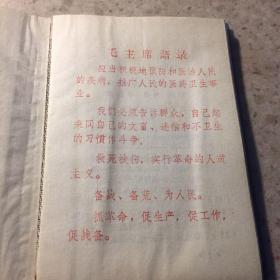 毛主席語录
应当积极地预防和医治人民
的疾病，推广人民的医药卫生事
业。
我们必须告诉群众，自己起
来同自己的文盲、迷信和不卫生
的习惯作斗争。
救死扶伤，实行革命的人道
主义。
备战、备荒、为人民。
抓革命，促生产，促工作，
促战备。